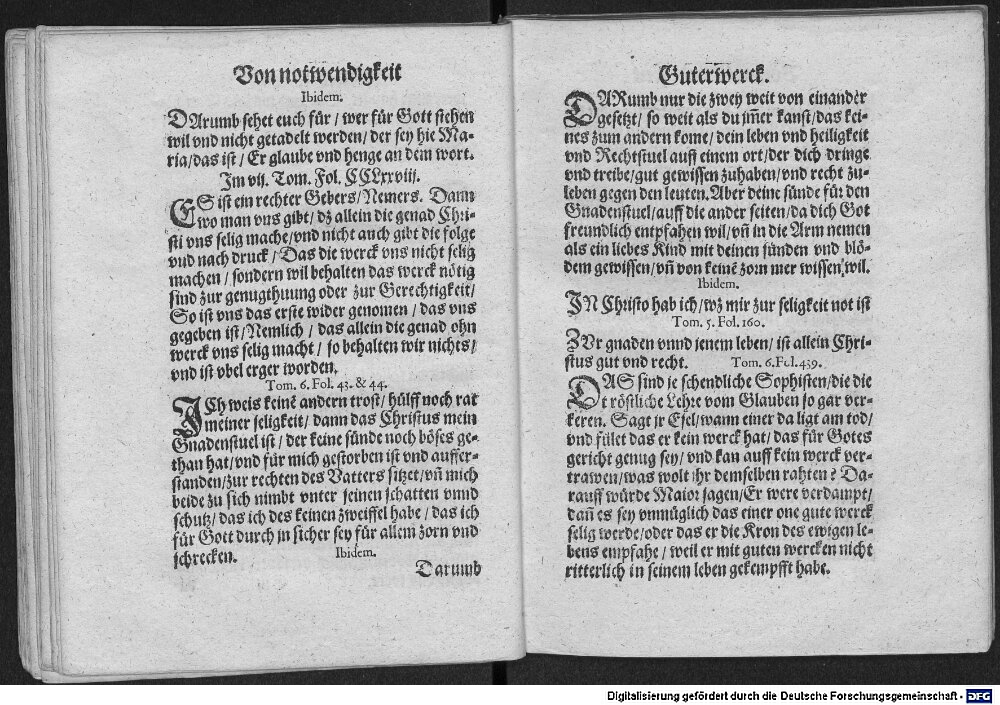 Von notwendigkeit
Ibidem.
DArumb sehet euch für / wer für Gott stehen
wil vnd nicht getadelt werden / der sey hie Ma-
ria / das ist / Er glaube vnd henge an dem wort.
Im vij. Tom. Fol. CCLxxviij.
ES ist ein rechter Gebers / Nemers. Dann
wo man vns gibt / dz allein die genad Chri-
sti vns selig mache / vnd nicht auch gibt die folge
vnd nach druck / Das die werck vns nicht selig
machen / sondern wil behalten das werck nötig
sind zur genugthuung oder zur Gerechtigkeit /
So ist vns das erste wider genomen / das vns
gegeben ist / Nemlich / das allein die genad ohn
werck vns selig macht / so behalten wir nichts /
vnd ist vbel erger worden.
Tom. 6. Fol. 43. & 44.
ICh weis keinē andern trost / hülff noch rat
meiner seligkeit / dann das Christus mein
Gnadenstuel ist / der keine sünde noch böses ge-
than hat / vnd für mich gestorben ist vnd auffer-
standen / zur rechten des Vatters sitzet / vñ mich
beide zu sich nimbt vnter seinen schatten vnnd
schutz / das ich des keinen zweiffel habe / das ich
für Gott durch jn sicher sey für allem zorn vnd
schrecken. Ibidem.
Darumb
Guter werck.
DARumb nur die zwey weit von einander
gesetzt / so weit als du jm̃er kanst / das kei-
nes zum andern kome / dein leben vnd heiligkeit
vnd Rechtstuel auff einem ort / der dich dringe
vnd treibe / gut gewissen zuhaben / vnd recht zu-
leben gegen den leuten. Aber deine sünde für den
Gnadenstuel / auff die ander seiten / da dich Got
freundlich entpfahen wil / vñ in die Arm nemen
als ein liebes Kind mit deinen sünden vnd blö-
dem gewissen / vñ von keinē zorn mer wissen wil.
Ibidem.
IN Christo hab ich / wz mir zur seligkeit not ist
Tom. 5. Fol. 160.
ZVr gnaden vnnd jenem leben / ist allein Chri-
stus gut vnd recht. Tom. 6. Fol. 439.
DAS sind je schendliche Sophisten / die die
tröstliche Lehre vom Glauben so gar ver-
keren. Sagt jr Esel / wann einer da ligt am tod /
vnd fület das er kein werck hat / das für Gotes
gericht genug sey / vnd kan auff kein werck ver-
trawen / was wolt ihr demselben rahten? Da-
rauff würde Maior sagen / Er were verdampt /
dañ es sey vnmüglich das einer one gute werck
selig werde / oder das er die Kron des ewigen le-
bens empfahe / weil er mit guten wercken nicht
ritterlich in seinem leben gekempfft habe.
Digitalisierung gefördert durch die Deutsche Forschungsgemeinschaft - DFG